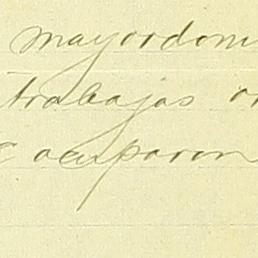 mayordom
trabajas or
ocuparon